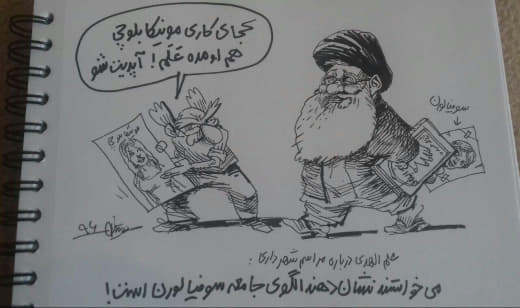 کجای کاری مونیکا بلوچی
هم اومده عَلَم! آپدیت شو
سوفیا لورن
مونیکا بلوچی
۹۶
علم الهدی درباره مراسم شهرداری:
می خواستند نشان دهند الگوی جامعه سوفیا لورن است!